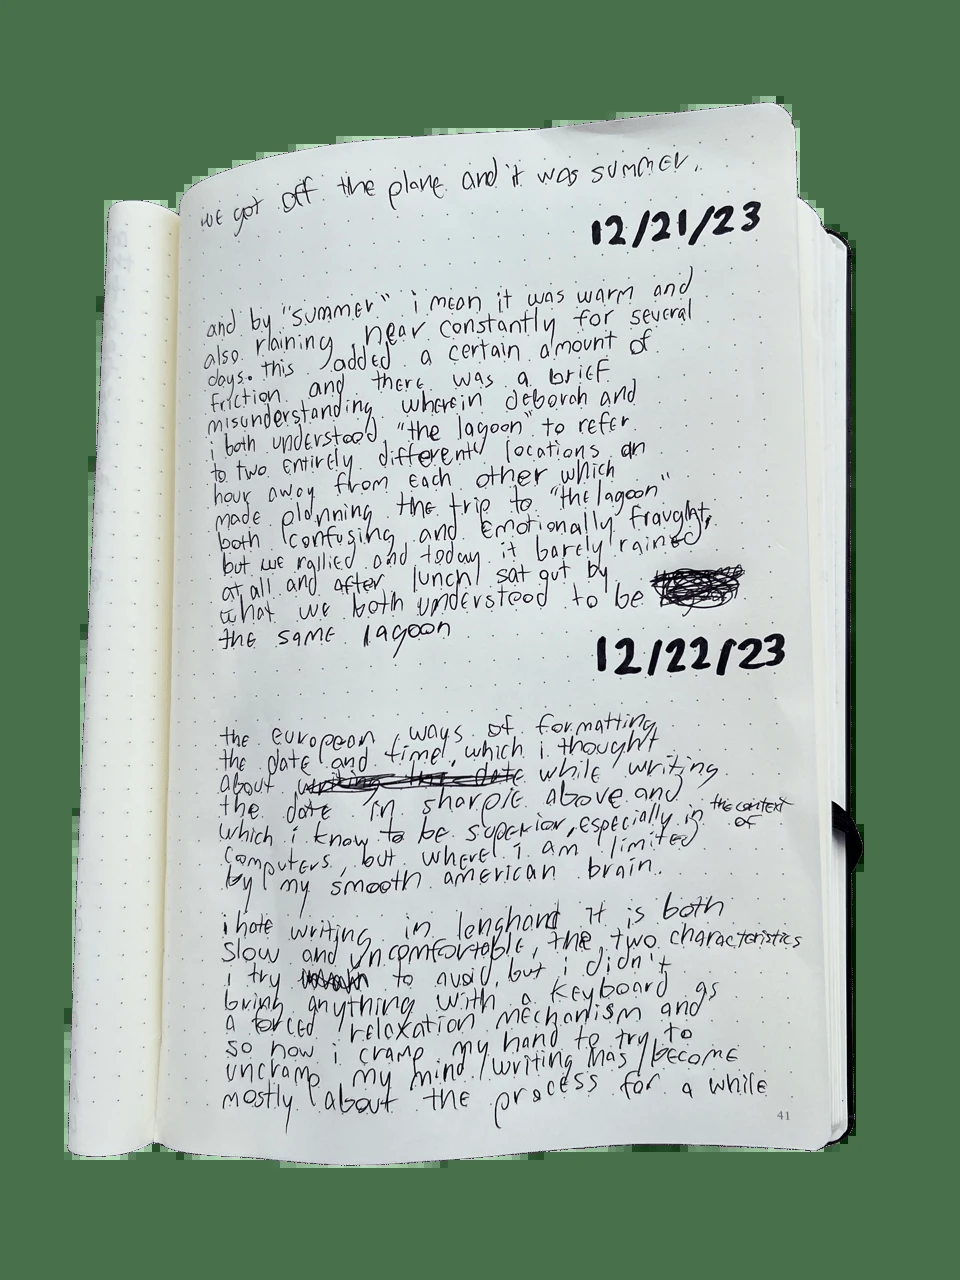 we got off the plane and it was summer.
12/21/23
and by "summer" i mean it was warm and
also raining near constantly for several
days. this added a certain amount of
friction and there was a brief
misunderstanding wherein deborah and
i both understood "the lagoon" to refer
to two entirely different locations an
hour away from each other which
made planning the trip to "the lagoon"
both confusing and emotionally fraught,
but we rallied and today it barely rained
at all and after lunch i sat out by
what we both understood to be
the same lagoon
12/22/23
the european ways of formatting
the date and time, which i thought
about writing the date while writing
the date in sharpie above and
which i know to be superior, especially in the context of
computers, but where i am limited
by my smooth american brain.
i hate writing in longhand it is both
slow and uncomfortable, the two characteristics
i try to avoid, but i didn't
bring anything with a keyboard as
a forced relaxation mechanism and
so now i cramp my hand to try to
uncramp my mind / writing has become
mostly about the process for a while
41